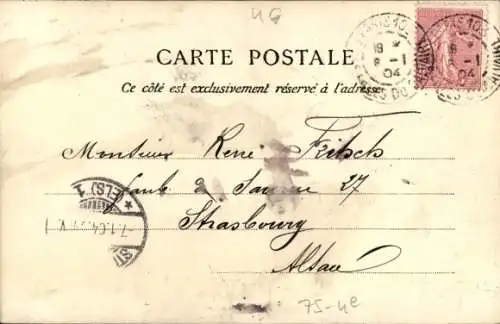 4G
CARTE POSTALE
Ce côté est exclusivement réservé à l'adresse
PARIS 108
18 *
8 -1
04
18 *
8 -1
04
Monsieur René Fritsch
27
Strasbourg
Alsace
(ELS) 1
7.1.04
75-4e